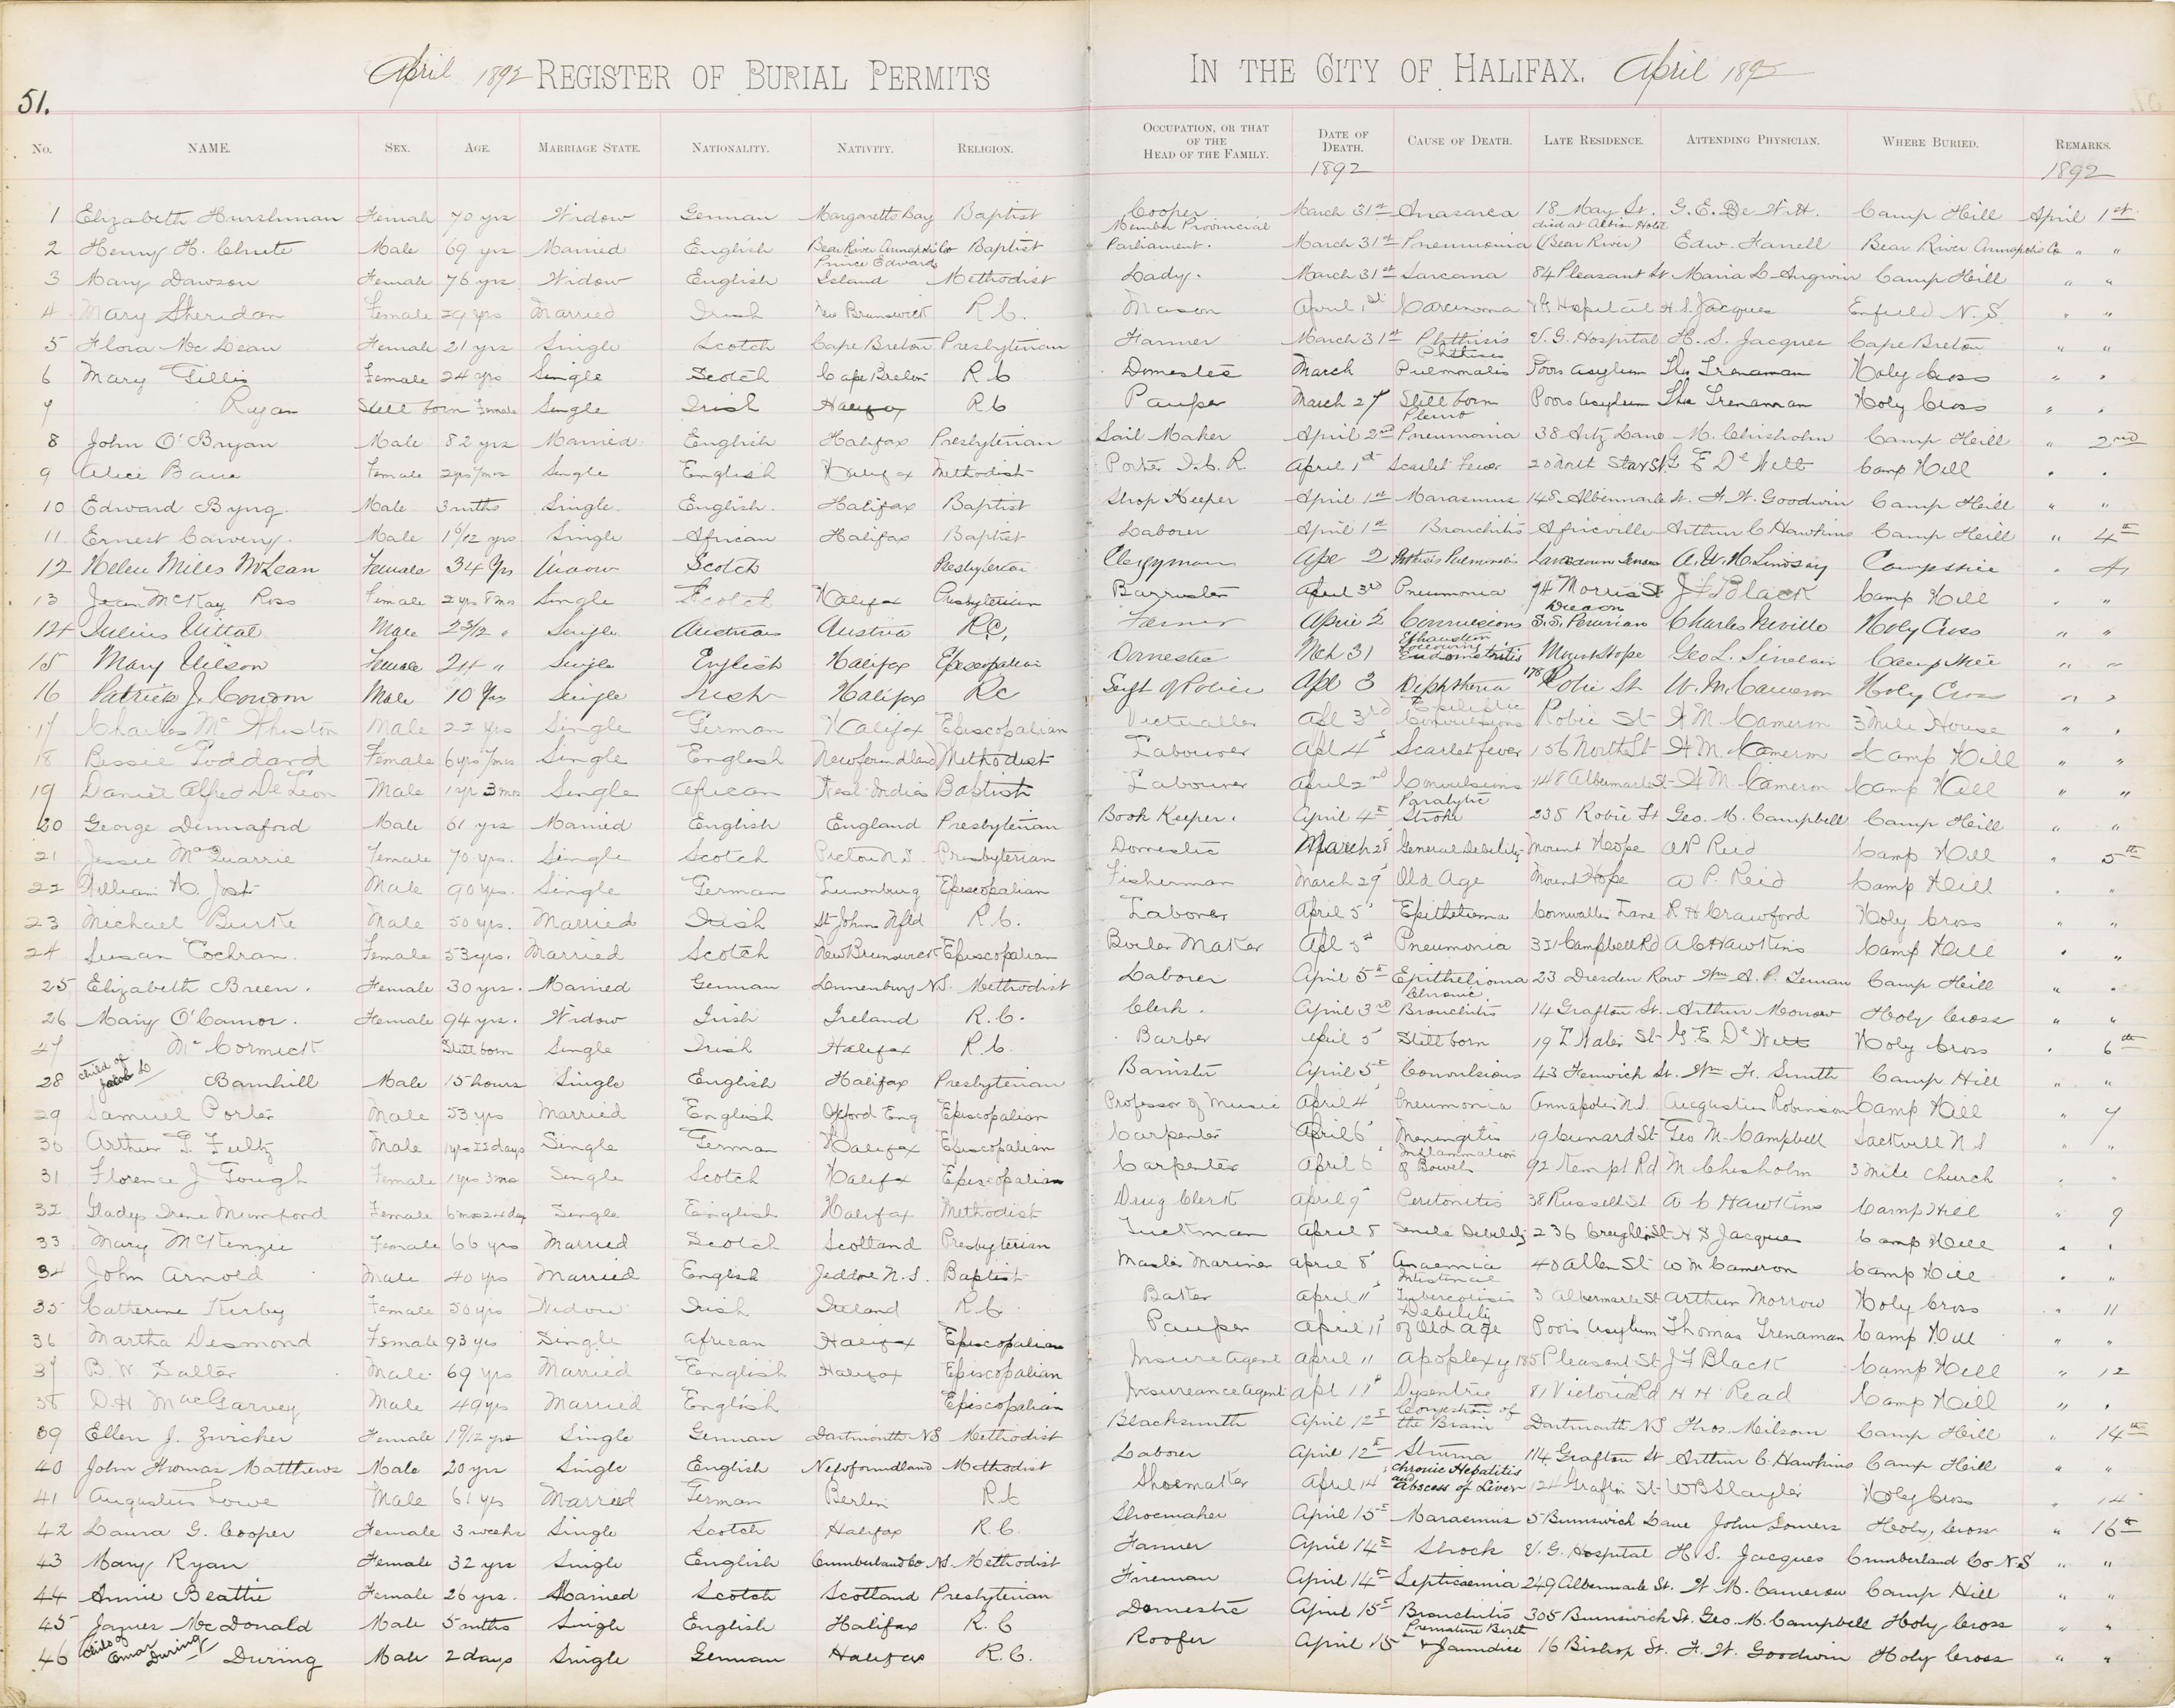 April 1892 REGISTER OF BURIAL PERMITS IN THE CITY OF HALIFAX. April 1892
51.
No. NAME. SEX. AGE. MARRIAGE STATE. NATIONALITY. NATIVITY. RELIGION. OCCUPATION, OR THAT OF THE HEAD OF THE FAMILY. DATE OF DEATH. CAUSE OF DEATH. LATE RESIDENCE. ATTENDING PHYSICIAN. WHERE BURIED. REMARKS.
1892 1892
1 Elizabeth Hurshman Female 70 yrs Widow German Margaretts Bay Baptist Cooper March 31st Anasarca 18 May St. G. E. De Witt Camp Hill April 1st
2 Henry H. Chute Male 69 yrs Married English Bear River Annapolis Co Baptist Member Provincial Parliament. March 31st Pneumonia died at Albion Hotel (Bear River) Edw. Farrell Bear River Annapolis Co " "
3 Mary Dawson Female 76 yrs Widow English Prince Edward Island Methodist Lady. March 31st Sarcoma 84 Pleasant St Maria L Angwin Camp Hill " "
4 Mary Sheridan Female 29 yrs Married Irish New Brunswick R.C. Mason April 1st Carcinoma Hospital H. S. Jacques Enfield N.S. " "
5 Flora McLean Female 21 yrs Single Scotch Cape Breton Presbyterian Farmer March 31st Phthisis V. G. Hospital H. S. Jacques Cape Breton " "
6 Mary Gillis Female 24 yrs Single Scotch Cape Breton R C Domestic March Phthisis Pulmonalis Poors Asylum Thos Trenaman Holy Cross " "
7 Ryan Still born Female Single Irish Halifax R C Pauper March 27 Still born Poors Asylum Thos Trenaman Holy Cross " "
8 John O'Bryan Male 82 yrs Married English Halifax Presbyterian Sail Maker April 2nd Pleuro Pneumonia 38 Artz Lane M. Chisholm Camp Hill " 2nd
9 Alice Female 2 yrs 7 mos Single English Halifax Methodist Porter I. C. R. April 1st Scarlet Fever 20 North Starr St G E De Witt Camp Hill " "
10 Edward Byng. Male 3 mths Single. English. Halifax Baptist Shop Keeper April 1st Marasmus 148 Albermarle St. F. W. Goodwin Camp Hill " "
11 Ernest Male 1 6/12 yrs Single African Halifax Baptist Laborer April 1st Bronchitis Africville Arthur C Hawkins Camp Hill " 4th
12 Helen Miles McLean Female 34 Yrs Scotch Presbyterian Clergyman Apl 2 Phthisis Pulmonalis A. W. H. Lindsay Camp Hill " 4
13 Jean McKay Ross Female 2 yrs 8 mos Single Scotch Halifax Presbyterian Barrister April 3rd Pneumonia 74 Morris St J F Black Camp Hill " "
14 Julius Vittal Male 2 5/12 " Single Austrian Austria R.C. Farmer April 2 Convulsions S.S. Peruvian Charles Neville Holy Cross " "
15 Mary Wilson Female 24 " Single English Halifax Episcopalian Domestic Mch 31 Exhaustion following Endometritis Mount Hope Geo L. Sinclair Camp Hill " "
16 Patrick J. Condon Male 10 Yrs Single Irish Halifax RC Apl 3 Diphtheria 178 Robie St W. M. Cameron Holy Cross " "
17 Charles Male 22 yrs Single German Halifax Episcopalian Victualler Apl 3rd Epileptic Convulsions Robie St W M. Cameron 3 Mile House " "
18 Bessie Goddard Female 6 yrs 7 mos Single English Newfoundland Methodist Labourer Apl 4 Scarlet fever 156 North St W M. Cameron Camp Hill " "
19 Daniel Alfred De Leon Male 1 yr 3 mos Single African West Indies Baptist Labourer April 2nd Convulsions 148 Albermarle St W M. Cameron Camp Hill " "
20 George Dunnaford Male 61 yrs Married English England Presbyterian Book Keeper. April 4th Paralytic Stroke 238 Robie St Geo. M. Campbell Camp Hill " "
21 Jessie MacQuarrie Female 70 yrs. Single Scotch Pictou N.S. Presbyterian Domestic March 28 General Debility Mount Hope A P Reid Camp Hill " 5th
22 William H. Jost Male 90 yrs. Single German Lunenburg Episcopalian Fisherman March 29 Old Age Mount Hope A P. Reid Camp Hill " "
23 Michael Burke Male 50 yrs. Married Irish St Johns Nfld R.C. Laborer April 5 Epithelioma Cornwallis Lane R H Crawford Holy Cross " "
24 Susan Cochran. Female 53 yrs. Married Scotch New Brunswick Episcopalian Boiler Maker Apl 5th Pneumonia 331 Campbell Rd A C Hawkins Camp Hill " "
25 Elizabeth Breen. Female 30 yrs. Married German Lunenburg N.S. Methodist Laborer April 5th Epithelioma 23 Dresden Row Camp Hill " "
26 Mary O'Connor. Female 94 yrs. Widow Irish Ireland R.C. Clerk. April 3rd Chronic Bronchitis 14 Grafton St. Arthur Morrow Holy Cross " "
27 McCormick Still born Single Irish Halifax R.C. Barber April 5 Still born 19 L Water St G E De Witt Holy Cross " 6th
28 child of Jacob Barnhill Male 15 hours Single English Halifax Presbyterian Barrister April 5th Convulsions 43 Fenwick St. Wm F. Smith Camp Hill " "
29 Samuel Porter Male 53 yrs Married English Oxford Eng Episcopalian Professor of Music April 4 Pneumonia Annapolis N.S. Augustus Robinson Camp Hill " 7
30 Arthur G. Fultz Male 1 yrs 22 days Single German Halifax Episcopalian Carpenter April 6 Meningitis 19 Cunard St Geo M. Campbell Sackvill N S " "
31 Florence J Gough Female 1 yrs 3 mo Single Scotch Halifax Episcopalian Carpenter April 6 Inflammation of Bowels 92 Kempt Rd M Chisholm 3 Mile Church " "
32 Gladys Irene Mumford Female 6 mos 24 day Single English Halifax Methodist Drug Clerk April 9 Peritonitis 38 Russell St A C Hawkins Camp Hill " 9
33 Mary McKenzie Female 66 yrs Married Scotch Scotland Presbyterian Truckman April 8 Senile Debility 236 Creighton St H S Jacques Camp Hill " "
34 John Arnold Male 40 yrs Married English Jeddore N.S. Baptist Master Mariner April 8 Anaemia 40 Allen St W M Cameron Camp Hill " "
35 Catherine Kirby Female 50 yrs Widow Irish Ireland R.C. Baker April 11 Intestinal Tuberculosis 3 Albermarle St Arthur Morrow Holy Cross " 11
36 Martha Desmond Female 93 yrs Single African Halifax Episcopalian Pauper April 11 Debility of Old age Poors Asylum Thomas Trenaman Camp Hill " "
37 B. W. Salter Male 69 yrs Married English Halifax Episcopalian Insure Agent April 11 Apoplexy 185 Pleasant St J F Black Camp Hill " 12
38 D. H MacGarvey Male 49 yrs Married English Episcopalian Insureance agent Apl 11 Dysentrie 81 Victoria Rd H H Read Camp Hill " "
39 Ellen J. Zwicker Female Single German Dartmouth N.S Methodist Blacksmith April 12th Congestion of the Brain Dartmouth N.S Thos. Milsom Camp Hill " 14th
40 John Thomas Matthews Male 20 yrs Single English Newfoundland Methodist Laborer April 12th Struma 114 Grafton St Arthur C. Hawkins Camp Hill " "
41 Augustus Lowe Male 61 yrs Married German Berlin R.C Shoemaker April 14 Chronic Hepatitis and Abscess of Liver 124 Grafton St W B Slayter Holy Cross " 14
42 Laura G. Cooper Female 3 weeks Single Scotch Halifax R.C. Shoemaker April 15th Marasmus 5 Brunswick Lane John Somers Holy Cross " 16th
43 Mary Ryan Female 32 yrs Single English Cumberland Co N.S. Methodist Farmer April 14th Shock V. G. Hospital H. S. Jacques Cumberland Co N.S " "
44 Annie Beattie Female 26 yrs. Married Scotch Scotland Presbyterian Fireman April 14th Septicaemia 249 Albermarle St. W. M. Cameron Camp Hill " "
45 James McDonald Male 5 mths Single English Halifax R. C Domestic April 15th Bronchitis 305 Brunswick St. Geo. M. Campbell Holy Cross " "
46 child of During During Male 2 days Single German Halifax R.C. Roofer April 15th Premature Birth & Jaundice 16 Bishop St. F. W. Goodwin Holy Cross " "